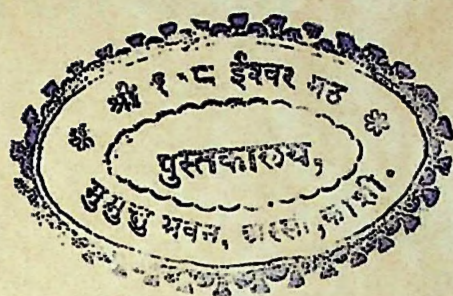 श्री १०८ ईश्वर मठ
पुस्तकालय,
मुमुक्षु भवन, अस्सी, काशी.